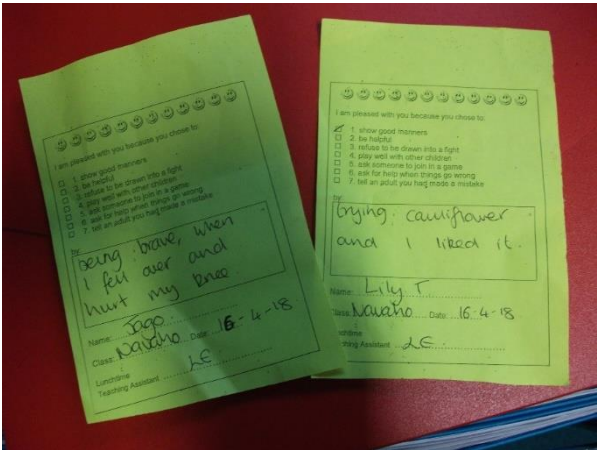 I am pleased with you because you chose to:
1. show good manners
2. be helpful
3. refuse to be drawn into a fight
4. play well with other children
5. ask someone to join in a game
6. ask for help when things go wrong
7. tell an adult you had made a mistake
by:
being brave, when
I fell over and
hurt my knee.
Name: Jago.
Class: Navaho Date: 16-4-18
Lunchtime
Teaching Assistant LE
I am pleased with you because you chose to:
1. show good manners
2. be helpful
3. refuse to be drawn into a fight
4. play well with other children
5. ask someone to join in a game
6. ask for help when things go wrong
7. tell an adult you had made a mistake
by:
trying cauliflower
and I liked it.
Name: Lily T.
Class: Navaho Date: 16-4-18
Lunchtime
Teaching Assistant LE